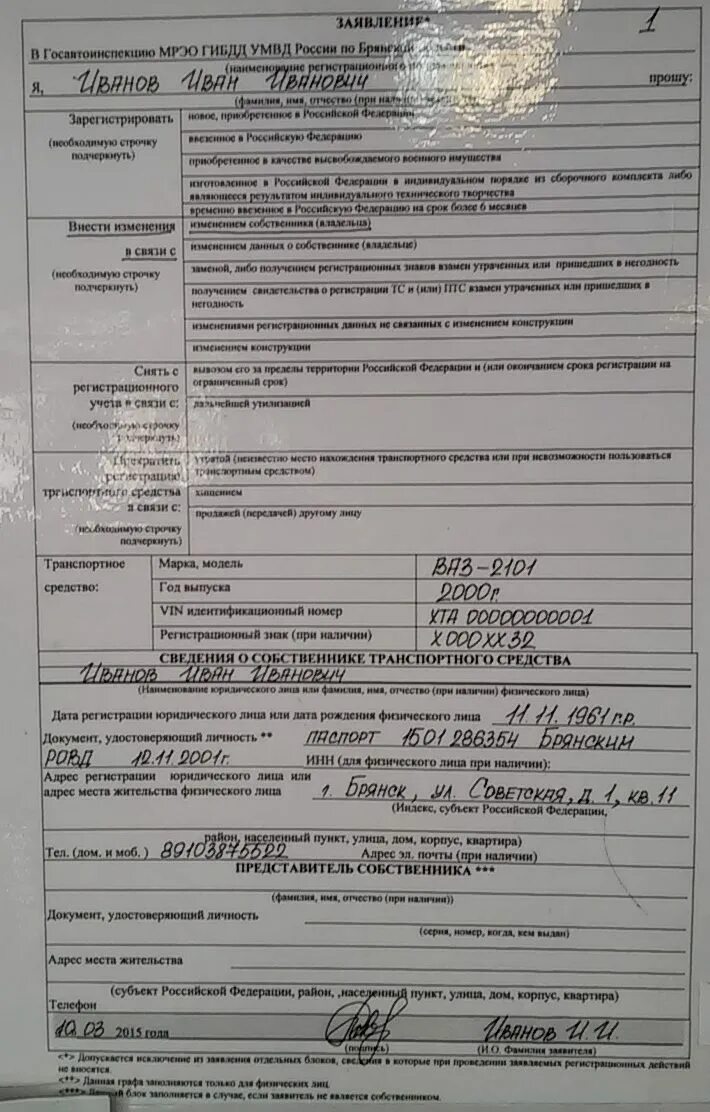 ЗАЯВЛЕНИЕ*
1
В Госавтоинспекцию МРЭО ГИБДД УМВД России по Брянской
(наименование регистрационного
Я, Иванов Иван Иванович прошу:
(фамилия, имя, отчество (при наличии)
Зарегистрировать
(необходимую строчку
подчеркнуть)
новое, приобретенное в Российской Федерации
ввезенное в Российскую Федерацию
приобретенное в качестве высвобождаемого военного имущества
изготовленное в Российской Федерации в индивидуальном порядке из сборочного комплекта либо
являющееся результатом индивидуального технического творчества
временно ввезенное в Российскую Федерацию на срок более 6 месяцев
Внести изменения
в связи с
(необходимую строчку
подчеркнуть)
изменением собственника (владельца)
изменением данных о собственнике (владельце)
заменой, либо получением регистрационных знаков взамен утраченных или пришедших в негодность
получением свидетельства о регистрации ТС и (или) ПТС взамен утраченных или пришедших в
негодность
изменениями регистрационных данных не связанных с изменением конструкции
изменением конструкции
Снять с
регистрационного
учета в связи с:
(необходимую строчку
подчеркнуть)
вывозом его за пределы территории Российской Федерации и (или окончанием срока регистрации на
ограниченный срок)
дальнейшей утилизацией
Прекратить
регистрацию
транспортного средства
в связи с:
(необходимую строчку
подчеркнуть)
утратой (неизвестно место нахождения транспортного средства или при невозможности пользоваться
транспортным средством)
хищением
продажей (передачей) другому лицу
Транспортное
средство:
Марка, модель ВАЗ-2101
Год выпуска 2000г.
VIN идентификационный номер ХТА 00000000001
Регистрационный знак (при наличии) Х000ХХ32
СВЕДЕНИЯ О СОБСТВЕННИКЕ ТРАНСПОРТНОГО СРЕДСТВА
Иванов Иван Иванович
(Наименование юридического лица или фамилия, имя, отчество (при наличии) физического лица)
Дата регистрации юридического лица или дата рождения физического лица 11.11.1961 г.р.
Документ, удостоверяющий личность ** паспорт 1501 286354 Брянским
РОВД 12.11.2001г. ИНН (для физического лица при наличии):
Адрес регистрации юридического лица или
адрес места жительства физического лица г. Брянск, ул. Советская, д. 1, кв. 11
(Индекс, субъект Российской Федерации,
район, населенный пункт, улица, дом, корпус, квартира)
Тел. (дом. и моб. ) 89103875522 Адрес эл. почты (при наличии)
ПРЕДСТАВИТЕЛЬ СОБСТВЕННИКА ***
(фамилия, имя, отчество (при наличии))
Документ, удостоверяющий личность
(серия, номер, когда, кем выдан)
Адрес места жительства
(субъект Российской Федерации, район, ,населенный пункт, улица, дом, корпус, квартира)
Телефон
10.03 2015 года Иванов И.И.
(подпись) (И.О. Фамилия заявителя)
<*> Допускается исключение из заявления отдельных блоков, сведения в которые при проведении заявляемых регистрационных действий
не вносятся.
<**> Данная графа заполняются только для физических лиц.
<***> Данный блок заполняется в случае, если заявитель не является собственником.